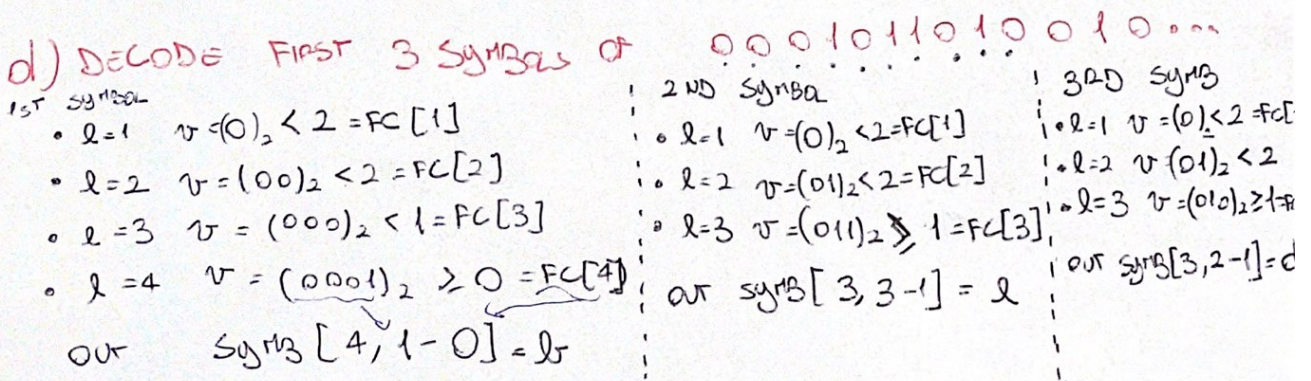 d) DECODE FIRST 3 SYMBOLS OF 0001011010010...
1ST SYMBOL
• l=1 v=(0)₂ < 2 = FC[1]
• l=2 v=(00)₂ < 2 = FC[2]
• l=3 v=(000)₂ < 1 = FC[3]
• l=4 v=(0001)₂ ≥ 0 = FC[4]
OUT SYMB[4,1-0]=b
2ND SYMBOL
• l=1 v=(0)₂ <2=FC[1]
• l=2 v=(01)₂<2=FC[2]
• l=3 v=(011)₂ ≥ 1=FC[3]
OUT SYMB[3,3-1] = e
3RD SYMB
• l=1 v=(0)₂<2=FC[
• l=2 v=(01)₂<2
• l=3 v=(010)₂≥1=F
OUT SYMB[3,2-1]=d